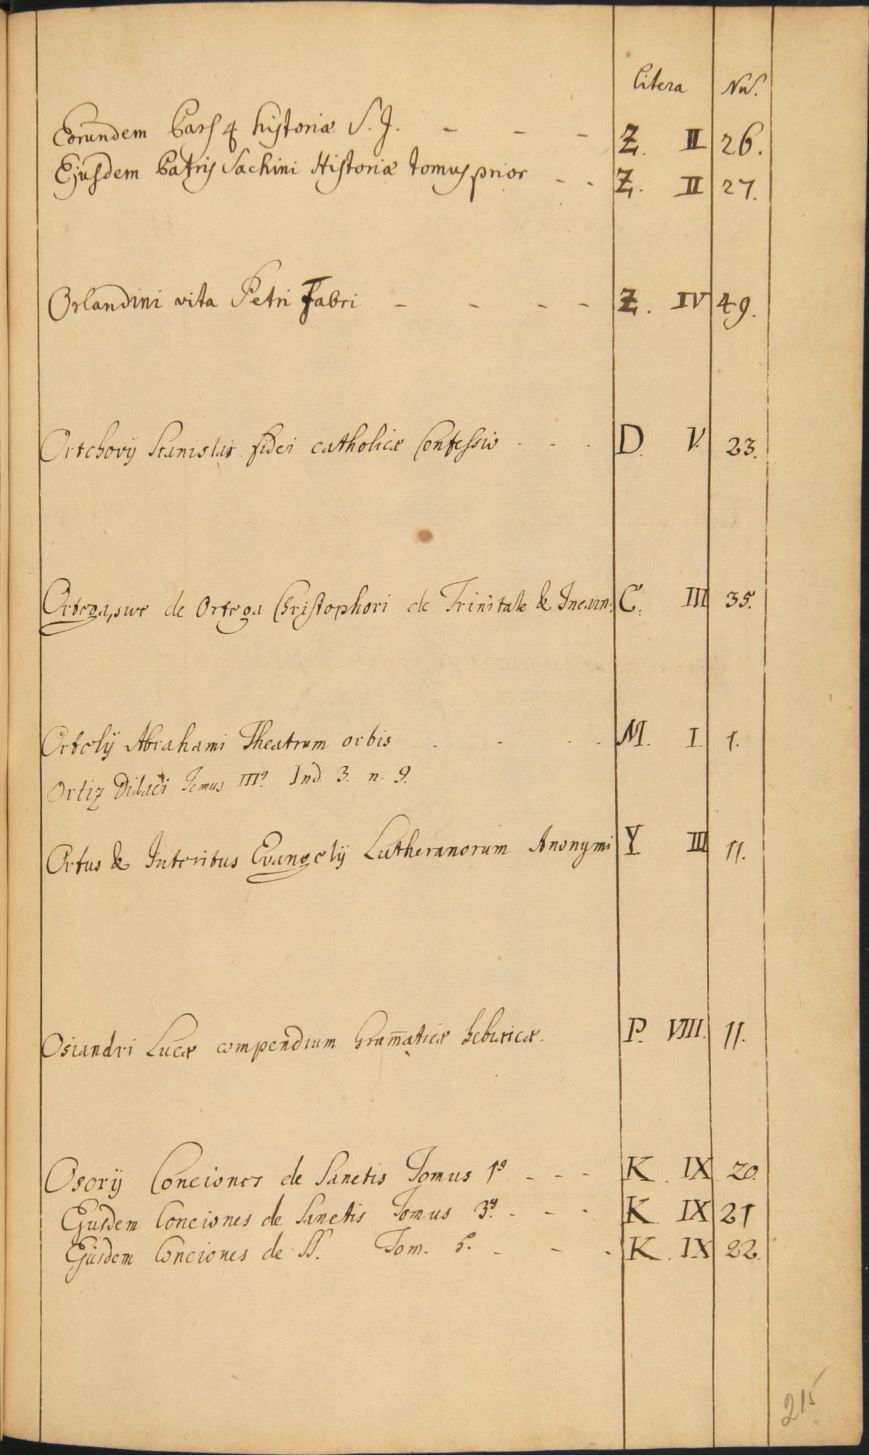 Litera Nus.
Eorundem Pars 4 historiæ S. J. - - - Z. II 26.
Ejusdem Patris Sachini Historiæ tomus prior - - Z. II 27.
Orlandini vita Petri Fabri - - - - Z. IV 49.
Orichovij Stanislai fidei catholicæ Confessio - - - D. V. 23.
Ortega, sive de Ortega Christophori de Trinitate & Incarn: C. III 35.
Ortelij Abrahami Theatrum orbis - - - - M. I. 1.
Ortiz Didaci Tomus IIIus Ind 3. n. 9.
Ortus & Interitus Evangelij Lutheranorum Anonymi Y III 11.
Osiandri Lucæ compendium Gram̄aticæ hebraicæ. P. VIII. 11.
Osorij Conciones de Sanctis Tomus 1us - - - K. IX. 20
Ejusdem Conciones de Sanctis Tomus 3us. - - - K IX 21
Ejusdem Conciones de SS. Tom. 5. - - - K. IX 22.
215